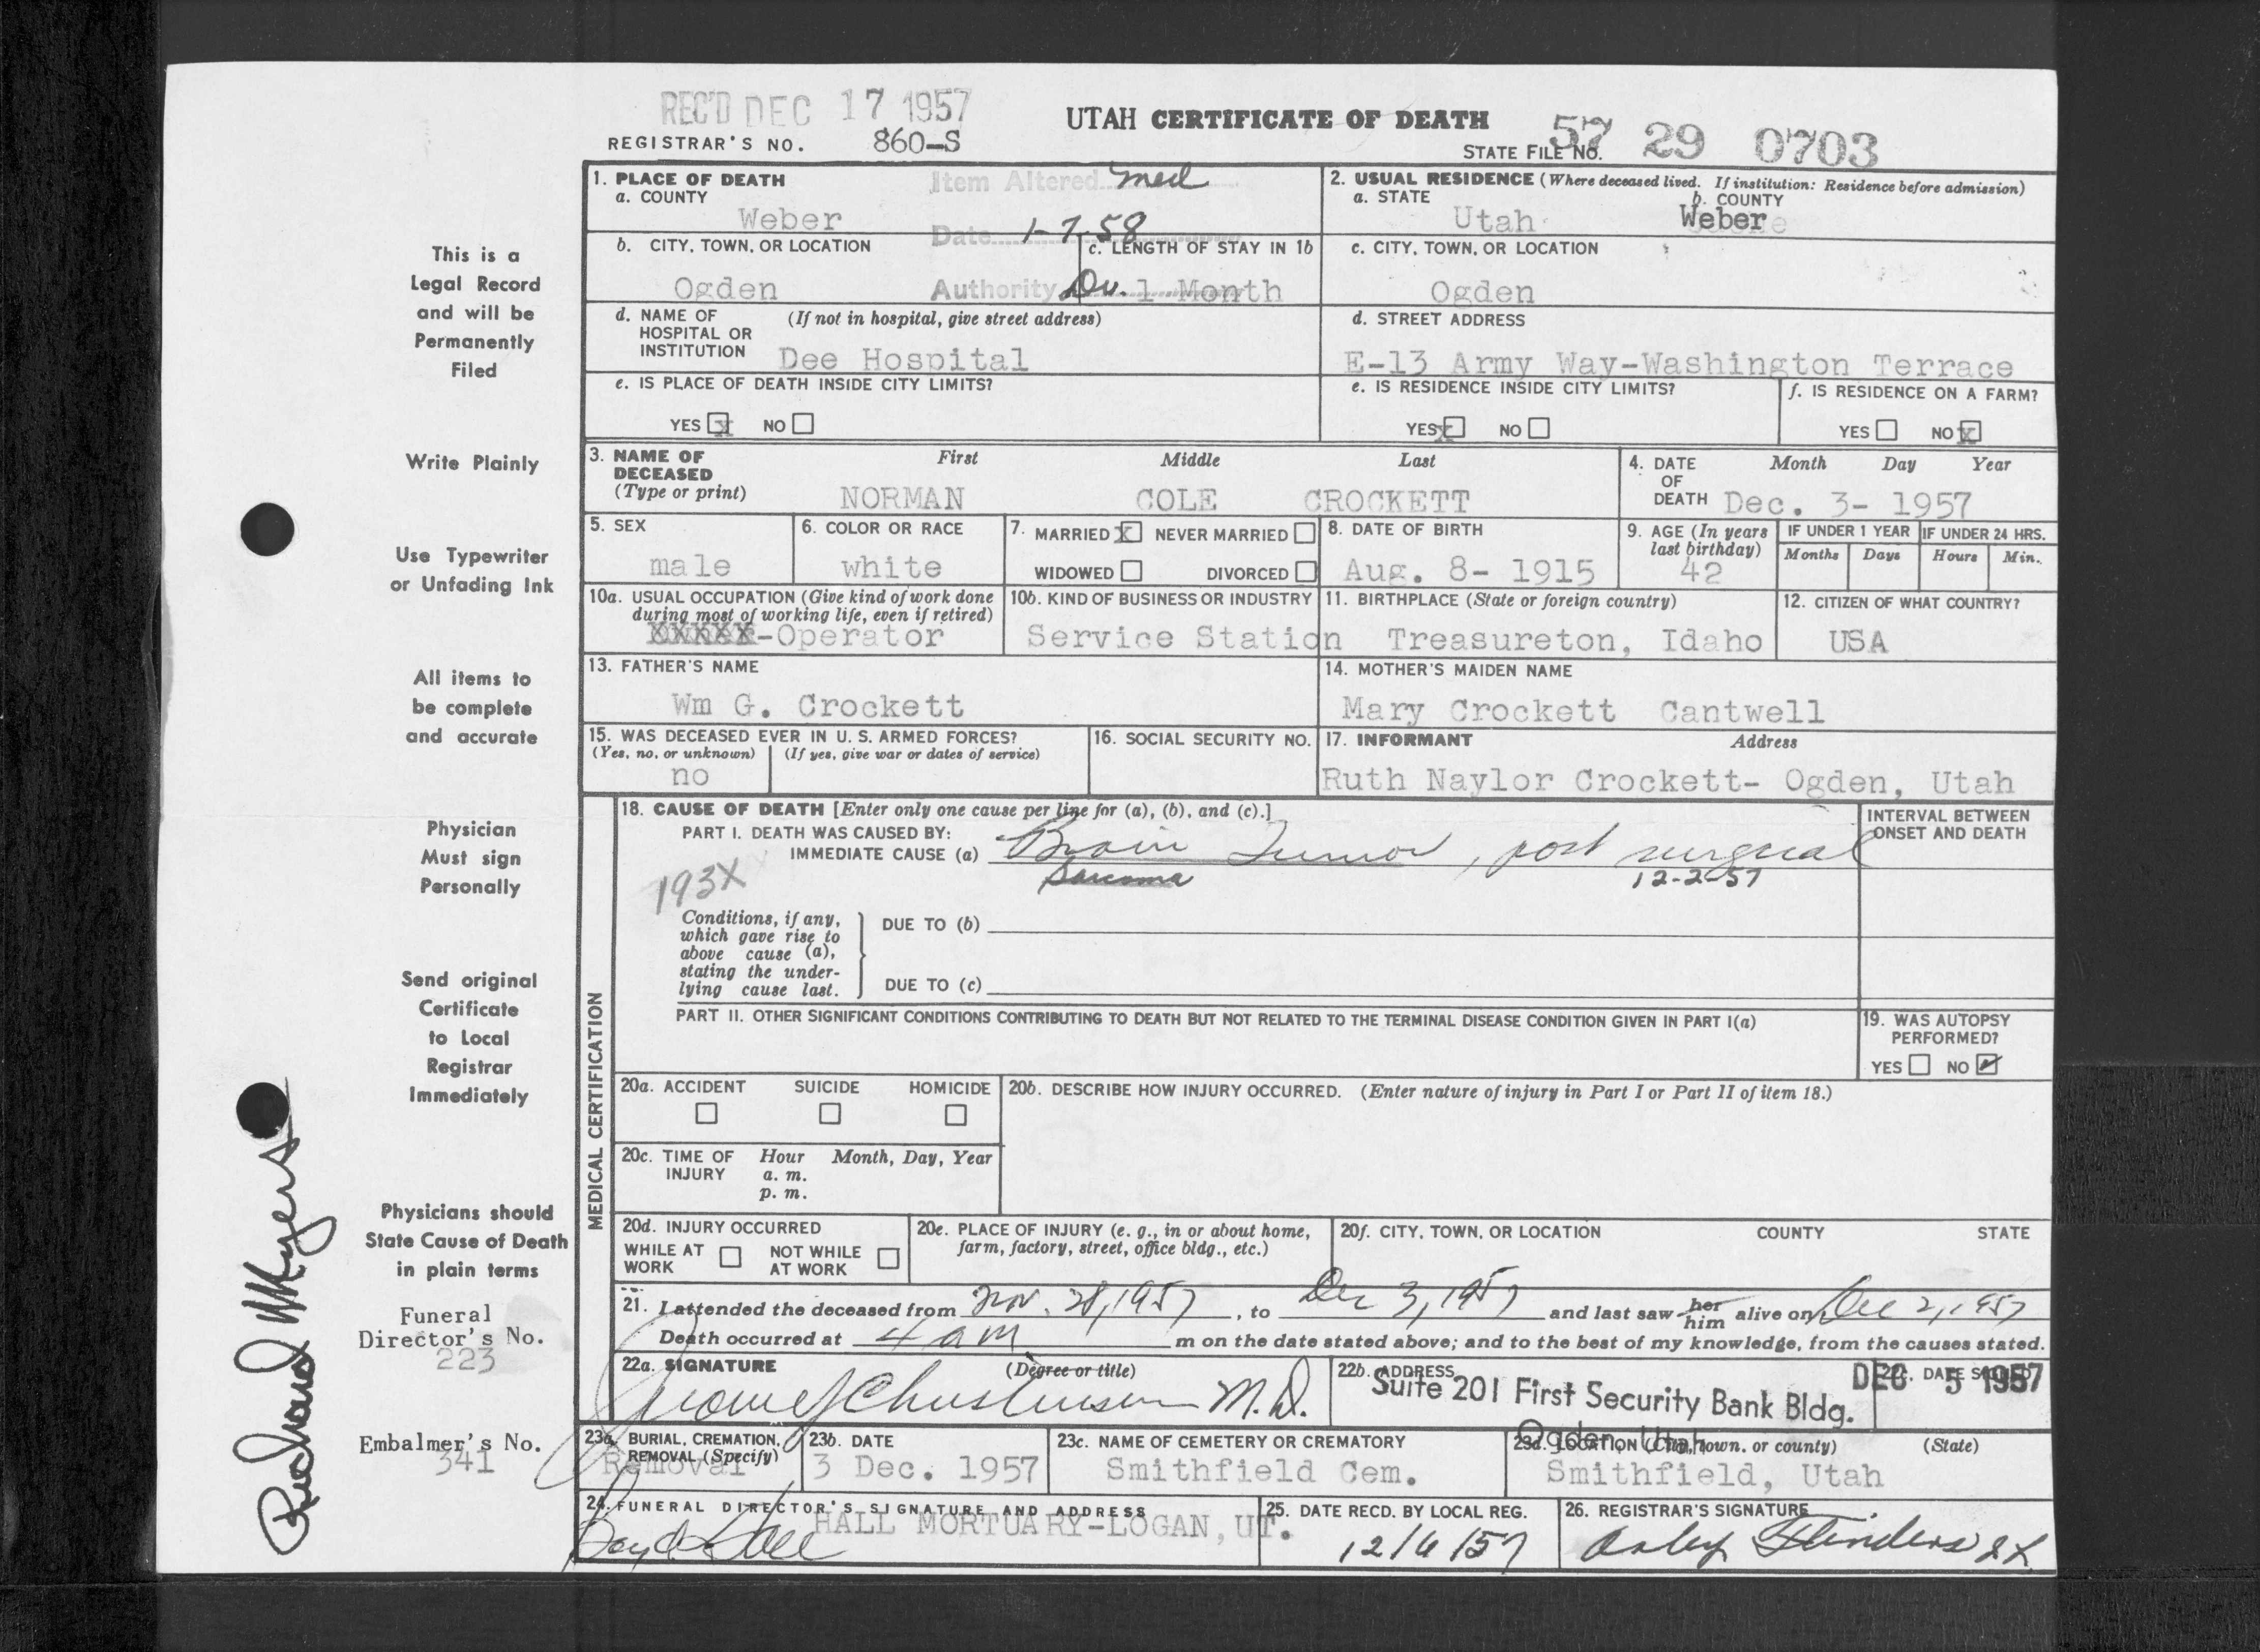 REC'D DEC 17 1957
UTAH CERTIFICATE OF DEATH
REGISTRAR'S NO. 860-S
STATE FILE NO. 57 29 0703
This is a
Legal Record
and will be
Permanently
Filed
Write Plainly
Use Typewriter
or Unfading Ink
All items to
be complete
and accurate
Physician
Must sign
Personally
Send original
Certificate
to Local
Registrar
Immediately
Physicians should
State Cause of Death
in plain terms
Funeral
Director's No.
223
Embalmer's No.
341
1. PLACE OF DEATH
a. COUNTY
Weber
Item Altered med
Date 1-7-58
Authority Dr.
2. USUAL RESIDENCE (Where deceased lived. If institution: Residence before admission)
a. STATE
Utah
b. COUNTY
Weber
b. CITY, TOWN, OR LOCATION
Ogden
c. LENGTH OF STAY IN 1b
1 Month
c. CITY, TOWN, OR LOCATION
Ogden
d. NAME OF (If not in hospital, give street address)
HOSPITAL OR
INSTITUTION Dee Hospital
d. STREET ADDRESS
E-13 Army Way-Washington Terrace
e. IS PLACE OF DEATH INSIDE CITY LIMITS?
YES x NO
e. IS RESIDENCE INSIDE CITY LIMITS?
YES x NO
f. IS RESIDENCE ON A FARM?
YES NO x
3. NAME OF
DECEASED
(Type or print)
First Middle Last
NORMAN COLE CROCKETT
4. DATE
OF
DEATH
Month Day Year
Dec. 3- 1957
5. SEX
male
6. COLOR OR RACE
white
7. MARRIED X NEVER MARRIED
WIDOWED DIVORCED
8. DATE OF BIRTH
Aug. 8- 1915
9. AGE (In years
last birthday)
42
IF UNDER 1 YEAR
Months Days
IF UNDER 24 HRS.
Hours Min.
10a. USUAL OCCUPATION (Give kind of work done
during most of working life, even if retired)
-Operator
10b. KIND OF BUSINESS OR INDUSTRY
Service Station
11. BIRTHPLACE (State or foreign country)
Treasureton, Idaho
12. CITIZEN OF WHAT COUNTRY?
USA
13. FATHER'S NAME
Wm G. Crockett
14. MOTHER'S MAIDEN NAME
Mary Crockett Cantwell
15. WAS DECEASED EVER IN U. S. ARMED FORCES?
(Yes, no, or unknown) (If yes, give war or dates of service)
no
16. SOCIAL SECURITY NO.
17. INFORMANT Address
Ruth Naylor Crockett- Ogden, Utah
MEDICAL CERTIFICATION
18. CAUSE OF DEATH [Enter only one cause per line for (a), (b), and (c).]
PART I. DEATH WAS CAUSED BY:
IMMEDIATE CAUSE (a) Brain Tumor, post surgical
Sarcoma 12-2-57
193X
INTERVAL BETWEEN
ONSET AND DEATH
Conditions, if any,
which gave rise to
above cause (a),
stating the under-
lying cause last.
DUE TO (b)
DUE TO (c)
PART II. OTHER SIGNIFICANT CONDITIONS CONTRIBUTING TO DEATH BUT NOT RELATED TO THE TERMINAL DISEASE CONDITION GIVEN IN PART I(a)
19. WAS AUTOPSY
PERFORMED?
YES NO ✓
20a. ACCIDENT SUICIDE HOMICIDE
20b. DESCRIBE HOW INJURY OCCURRED. (Enter nature of injury in Part I or Part II of item 18.)
20c. TIME OF Hour Month, Day, Year
INJURY a. m.
p. m.
20d. INJURY OCCURRED
WHILE AT
WORK
NOT WHILE
AT WORK
20e. PLACE OF INJURY (e. g., in or about home,
farm, factory, street, office bldg., etc.)
20f. CITY, TOWN, OR LOCATION COUNTY STATE
21. I attended the deceased from Nov. 28, 1957, to Dec 3, 1957 and last saw her him alive on Dec 2, 1957
Death occurred at 4 am m on the date stated above; and to the best of my knowledge, from the causes stated.
22a. SIGNATURE (Degree or title)
M.D.
22b. ADDRESS
Suite 201 First Security Bank Bldg.
Ogden, Utah
22c. DATE SIGNED
DEC 5 1957
23a. BURIAL, CREMATION,
REMOVAL (Specify)
Removal
23b. DATE
3 Dec. 1957
23c. NAME OF CEMETERY OR CREMATORY
Smithfield Cem.
23d. LOCATION (City, town, or county) (State)
Smithfield, Utah
24. FUNERAL DIRECTOR'S SIGNATURE AND ADDRESS
HALL MORTUARY-LOGAN, UT.
25. DATE RECD. BY LOCAL REG.
12/6/57
26. REGISTRAR'S SIGNATURE
Richard Myers